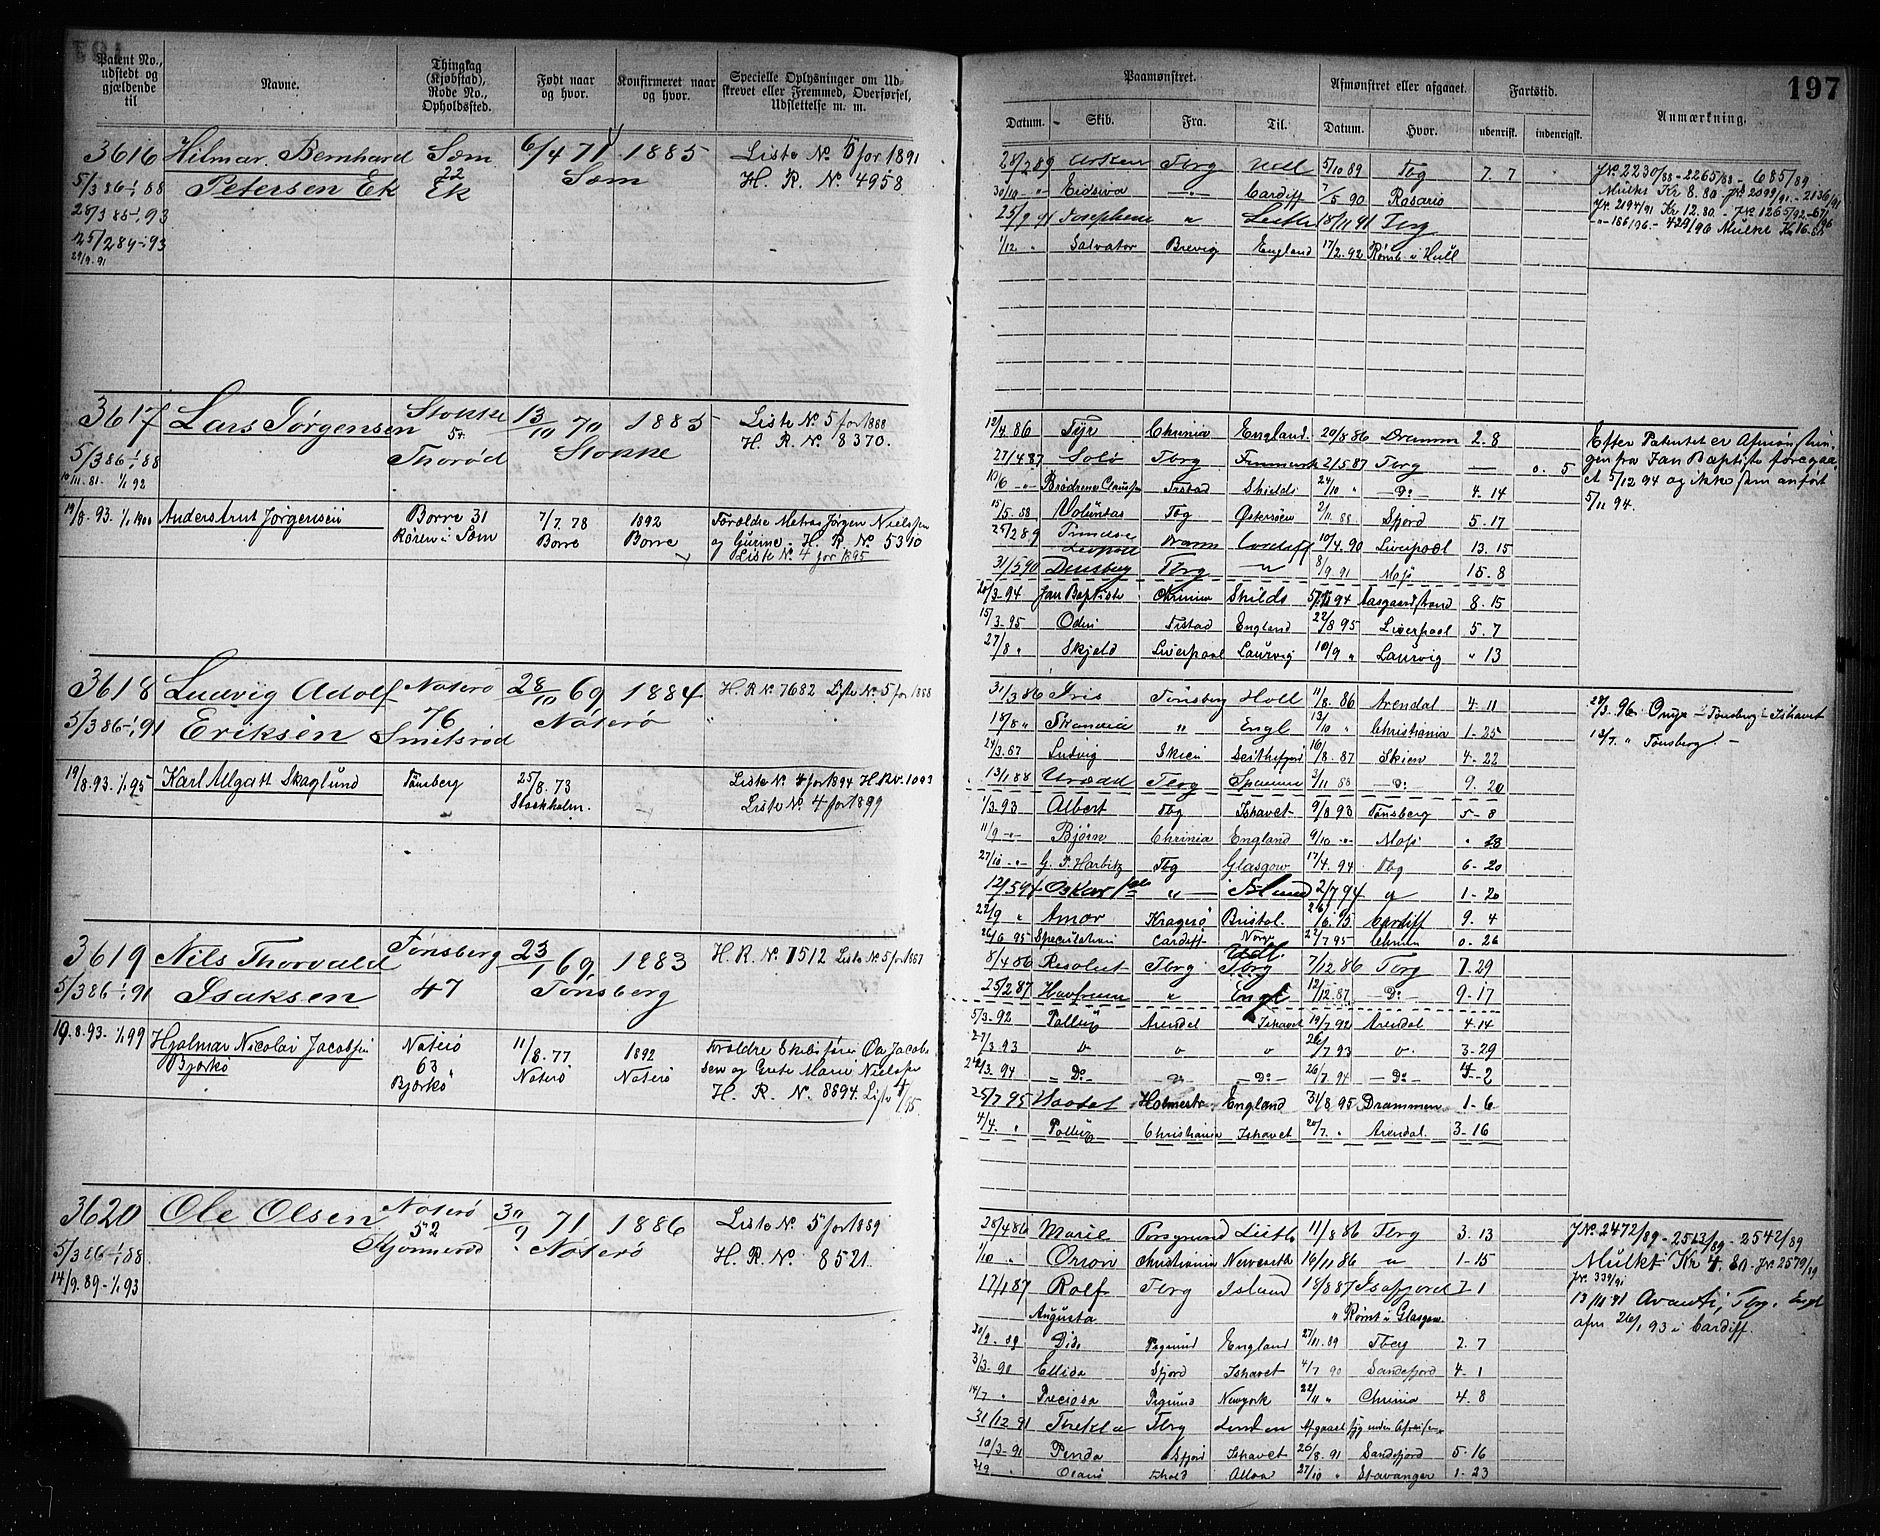 197
Patent No., udstedt og gjældende til
Navne.
Thinglag (Kjøbstad), Rode No., Opholdssted.
Født naar og hvor.
Konfirmeret naar og hvor.
Specielle Oplysninger om Udstrevet eller Fremmed, Overførsel, Udslettelse m. m.
Paamønstret.
Afmønstret eller afgaaet.
Fartstid.
Anmærkning.
Datum.
Skib.
Fra.
Til.
Datum.
Hvor.
udenrigst.
indenrigst.
3616 Hilmar Bernhard Sem 6/4 71 1885 Liste No 5 for 1891
5/3 86-1/1 88 Petersen Ek 22 Ek Sem H. R. No. 4958
28/3 85-1/1 93
25/2 89-1/1 93
29/9. 91
28/2 89 Tbrg 5/10 89 Tbg 7. 7
30/10 - " Eidsiva - " - Cardiff 7/5 90 Rosario
25/9 91 Josephine " Leith 18/11 91 Tbrg
1/12 " Salvator Brevig England 17/2. 92 Rømt i Hull
JNo 2230/88 - 2265/88 - 685/89
Mulkt Kr 8.80 JNo 2099/91 - 2136/91
JNo 2194/91 Kr 12.80 - JNo 1265/92
3617 Lars Jørgensen Stokke 13/10 70 1885 Liste No 5 for 1888
5/3 86-1/1 88 54 Thorød Stokke H. R. No. 8370.
1/1 92
19/8. 93. 1/1 1900 Anders Arnt Jørgensen Borre 31 7/7. 78 1892 Forældre Matros Jørgen Nielsen
Røren i Sem Borre Borre og Gurine. H. R No 5310
Liste No 4 for 1895
12/4 86 Tyr Chrinia England 20/8 86 Dramm 2. 8
27/4 87 Solo Tbrg Finmark 21/5 87 Tbrg — 0. 5
10/6 - " Brødrene Clausen Frstad Shields 24/10 " — Do 4. 14
15/5. 88 Voluntas Tbg Østersøen 2/11. 88 Sfjord 5. 17
25/2 89 Dramm Cardiff 10/4. 90 Liverpool 13. 15
31/5 90 Tbrg — " 8/9. 91 Moss 15. 8
20/3. 94 Jan Baptiste Chrinia Shilds 94 Aasgaardstrand 8. 15
15/3. 95 Odin Frstad England 22/8 95 Liverpool 5. 7
27/8 " Skjold Liverpool Laurvig 10/9 " Laurvig " 13
Efter Patentet er Afmønstringen
fra Jan Baptiste foregaaet
5/12 94 og ikke som anført
5/11 94.
3618 Ludvig Adolf Nøterø 28/10 69 1884 H. R No. 7682 Liste No. 5 for 1888
5/3 86-1/1 91 Eriksen 76 Smitsrød Nøterø
19/8. 93. 1/1 95 Karl Algatt Skaglund Tønsberg 25/8. 73 Liste No. 4 for 1894 H.R.No. 1093
Stockholm. Liste No. 4 for 1899
31/3 86 Iris Tønsberg Holl 11/8. 86 Arendal 4. 11
18/8 " Skandia " Engl 13/10 " Christiania 1-25
24/3. 87 Ludvig Skien 16/8. 87 Skien 4-22
13/1 88 Urædd Tbrg 2/11 88 — Do 9. 20
1/3. 93 Albert Tbg Ishavet 9/8 93 Tønsberg 5-8
11/9 - " - Bjørn Chrinia England 9/10 - " - Moss " 28
27/10 - " G. P. Harbitz Tbg Glasgow 17/4. 94 Tbg 6-20
12/5 94 Oskar " — Island 2/7 94 " 1-20
22/9 " Amor Kragerø Bristol 95 Cardiff 9. 4
26/6 95 Speculation Cardiff Norge 22/7 95 0. 26
28/3. 96. Onyx - Tønsberg - Ishavet
12/7. " Tønsberg. -
3619 Nils Thorvald Tønsberg 23/1 69 1883 H. R. No. 7512 Liste No. 5 for 1887
5/3 86-1/1 91 Isaksen 47 Tønsberg
19.8.93. 1/1 99 Hjalmar Nicolai Jacobsen Nøterø 11/8. 77 1892 Forældre Skibsfører Ole Jacobsen
Bjerkø 63 Bjerkø Nøterø Nøterø og Grete Marie Nielsen
H. R. No. 8694. Liste 4/95
8/4 86 Resolut Tbrg Udl. Tbrg 7/12 86 Tbrg 7. 29
25/2 87 Havfruen " Engl 12/12. 87. — Do 9-17
5/3. 92 Pollux Arendal Ishavet 19/7. 92 Arendal 4. 14
27/3. 93 " " " 26/7 93 " 3-29
3. 94 — Do — " — Do 26/7. 94 — Do 4-2
25/7 95 Holmestr. England 31/8 95 Drammen 1-6
4/4. " Pollux Christiania Ishavet 20/7. " Arendal 3-16
3620 Ole Olsen Nøterø 30/9 71 1886 Liste No. 5 for 1889
5/3 86-1/1 88 52 Nøterø H. R. No. 8521.
14/9. 89 - 1/1. 93
28/4 86 Marie Porsgrund Leith 11/8 86 Tbrg 3. 13
1/10 " Orion Christiania 16/11 86 " 1-15
17/1 87 Rolf Tbrg Island 18/8 87 Isafjord 7. 1
Augusta " Rømt i Glasgow
30/9. 89 Dido England 27/11. 89 Tberg 2. 7
3/3-90 Ellida Sfjord Ishavet 4/7 90 Sandefjord 4. 1
14/7 " Preciosa Newyork 22/11 " Chrinia 4. 8
31/12. 91 Thekla Tbrg London
10/3-91 Penda Sfjord Ishavet 26/8. 91 Sandefjord 5-16
Alloa 27/10 " Stavanger 1-23
JNo. 2472/89 - 2513/89 - 2542/89
Mulkt Kr 4. 80. Jr. 2579/89
Jr. 339/91
13/11 91 Avanti, Tbg. Engl
afm 26/1 93 i Cardiff.